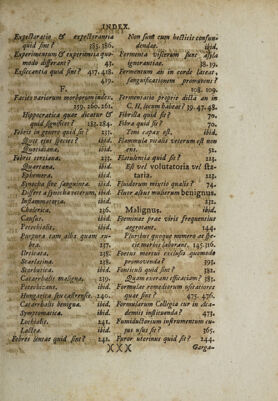 INDEX.
Expectoratio & expectorantia
quid sint? 385. 386.
Experimentum & experientia quo-
modo differant? 43.
Exsiccantia quid sint? 417. 418.
419.
F.
Facies variorum morborum index.
259. 260. 261.
Hippocratica quæ dicatur &
quid significet? 283. 284.
Febris in genere quid sit? 231.
Quot ejus species? ibid.
Quotidiana. ibid.
Febris tertiana. 231.
Quartana. ibid.
Ephemera. ibid.
Synocha sive sanguinea. ibid.
Differt a synocha veterum. ibid.
Inflammatoria. ibid.
Cholerica. 236.
Causus. ibid.
Petechialis. ibid.
Purpura tam alba quam ru-
bra. 237.
Urticata. 238.
Scarlatina. 238.
Scorbutica. ibid.
Catarrhalis maligna. 239.
Petechizans. ibid.
Hungarica seu castrensis. 240.
Catarrhalis benigna. ibid.
Symptomatica. ibid.
Lochialis. 241.
Lactea. ibid.
Febres lentæ quid sint? 241.
Non sunt cum hecticis confun-
dendæ. ibid.
Fermenta viscerum sunt asyla
ignorantiæ. 38. 39.
Fermentum an in corde lateat,
sanguificationem promovens?
108. 109.
Fermentatio proprie dicta an in
C. H. locum habeat? 39. 47. 48.
Fibrilla quid sit? 70.
Fibra quid sit? ibid.
Toni capax est. ibid.
Flammula vitalis veterum est non
ens. ibid.
Flatulentia quid sit? 223.
Est vel volutatoria vel sta-
taria. 223.
Fluidorum mixtio qualis? 74.
Fluor albus mulierum benignus.
232.
Malignus. ibid.
Fœminæ præ viris frequentius
ægrotant. 144.
Pluribus quoque numero ac spe-
cie morbis laborant. 145. 316.
Foetus mortui exclusio quomodo
promovenda? 395.
Fonticuli quid sint? 382.
Quam exerant efficaciam? 383.
Formulæ remediorum officaciores
quæ sint? 475. 476.
Formularum Collegia cur in Aca-
demiis instituenda? 476.
Fumiductorium instrumentum cu-
jus usus sit? 365.
Furor uterinus quid sit? 244.
XXX
Garga-